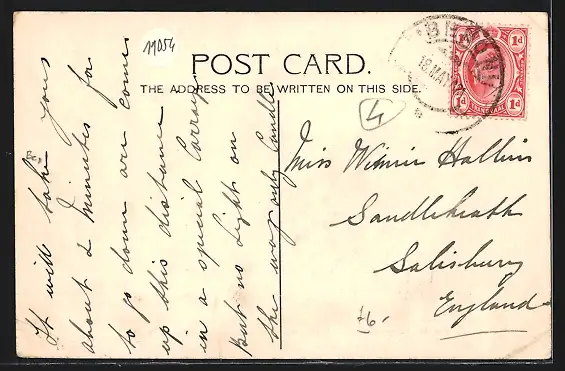 11054
POST CARD.
THE ADDRESS TO BE WRITTEN ON THIS SIDE.
4
1d 1d
1d 1d
18 MAY
Miss Winnie Hallins
Sandleheath
Salisbury
England
It will take yous
about 2 minutes for
to go down are comes
up this distance
in a special carry
But no light on
the way only Candle
t6-